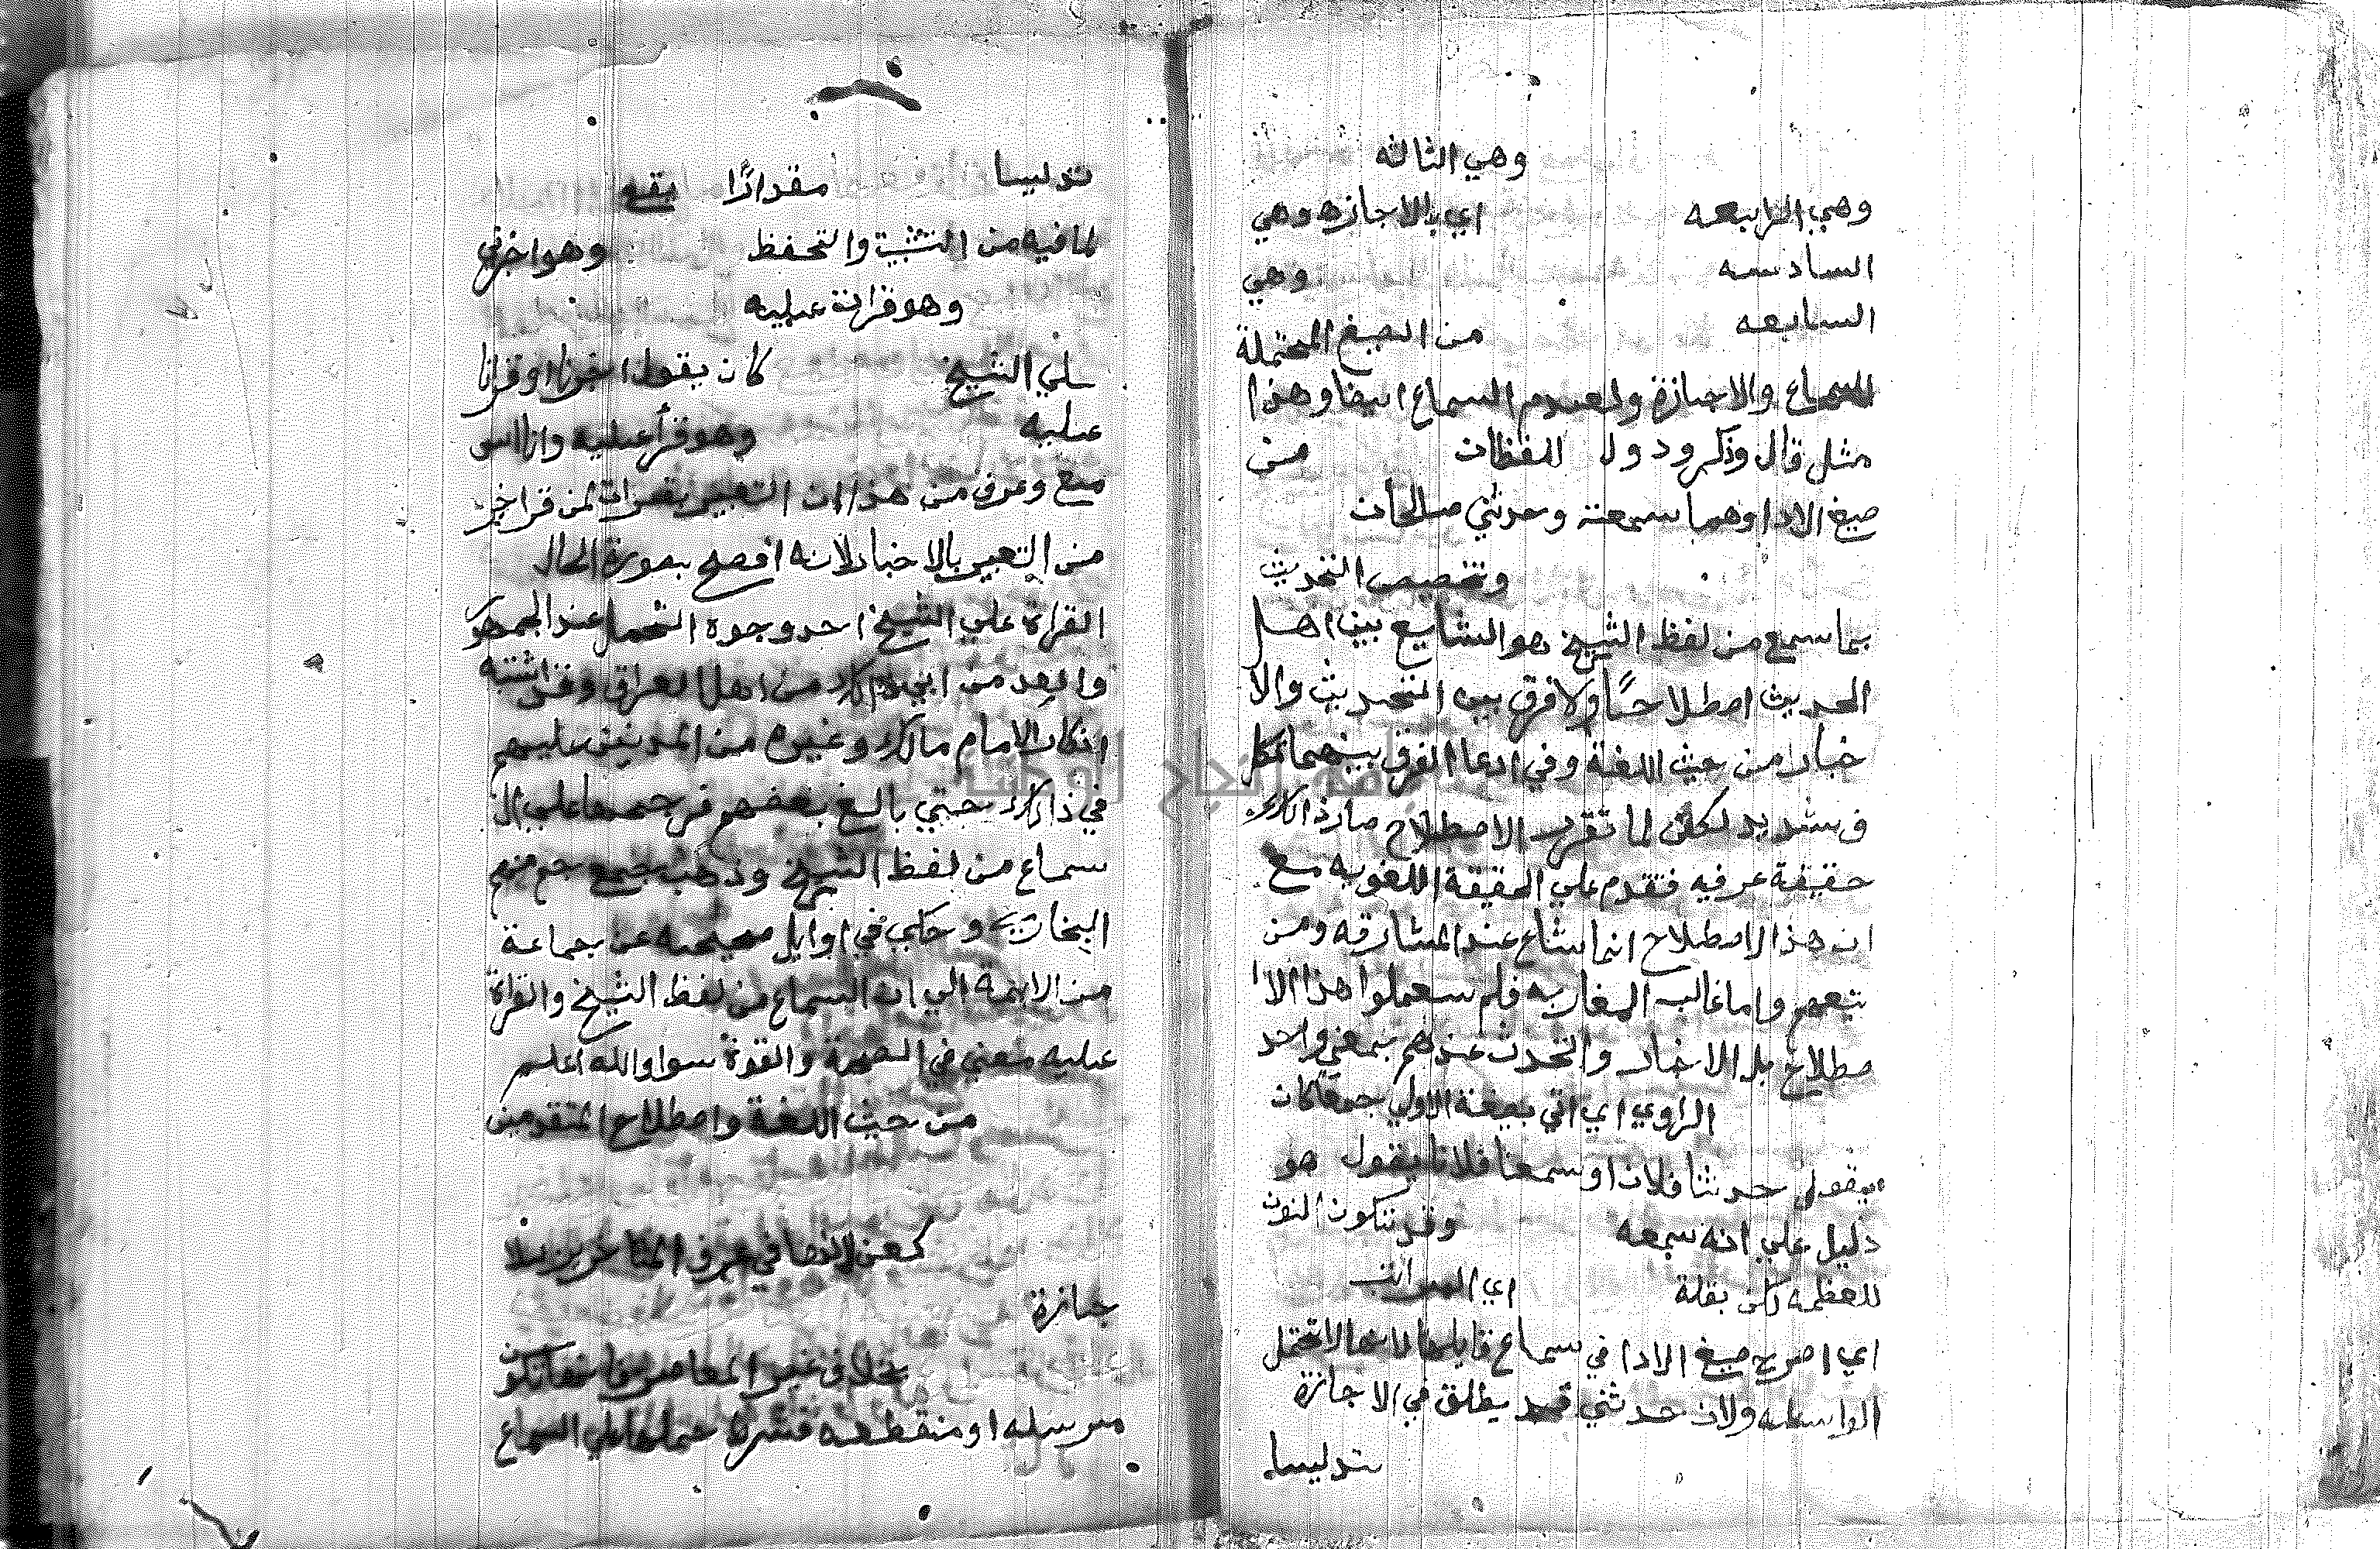 وهي الثالثه
وهي الرابعه اي بالاجازه وهي
السادسه وهي
السابعه من الصيغ المحتملة
للسماع والاجازة ولعدم السماع ايضا وهذا
مثل قال وذكر ودول اللفظان من
صيغ الادا وهما سمعت وحدثني صالحان
وتخصيص التحديث
بما سمع من لفظ الشيخ هو الشايع بين اهل
الحديث اصطلاحًا ولا فرق بين التحديث والا
خبار من حيث اللغة وفي ادعا الفرق بينهما تكل
ف شديد لكن لما تقرر الاصطلاح صار ذالك
حقيقة عرفيه فتقدم علي الحقيقة اللغويه مع
ان هذا الاصطلاح انما شاع عند المشارقه ومن
تبعهم واما غالب المغاربه فلم يستعملوا هذا الا
صطلاح بل الاخبار والتحديث عندهم بمعني واحد
الراوي اي اتي بصيغة الاولي جمعا كان
يقول حدثنا فلان او سمعنا فلانا يقول هو
دليل علي انه سمعه وقد تكون النون
للعظمه لكن بقلة اي المراتب
اي اصرح صيغ الادا في سماع قايلها لانها لا تحتمل
الواسطه ولان حدثني قد يطلق في الاجازة
تدليسا
تدليسا مقدارًا يقع
لما فيه من التثبت والتحفظ وهو اخبرني
وهو قرات عليه
علي الشيخ كان يقول اخبرنا او قرانا
عليه وهو قرأ عليه وانا اسمع
وعرف من هذا ان التعبير بقرات لمن قرا خير
من التعبير بالاخبار لانه افصح بصورة الحال
القراة علي الشيخ احد وجوه التحمل عند الجمهور
وابعد من ابي ذالك من اهل العراق وقد اشتد
انكار الامام مالك وغيره من المدنيين عليهم
في ذالك حتي بالغ بعضهم فرجحها علي ال
سماع من لفظ الشيخ وذهب جمع جم منهم
البخاري وحكي في اوايل صحيحه عن جماعة
من الايمة الي ان السماع من لفظ الشيخ والقراة
عليه معني في الصحة والقوة سوا والله اعلم
من حيث اللغة واصطلاح المتقدمين
كعن لانها في عرف المتاخرين للا
جازة
بخلاف غير المعاصر فانها تكون
مرسله او منقطعه فشرط حملها علي السماع